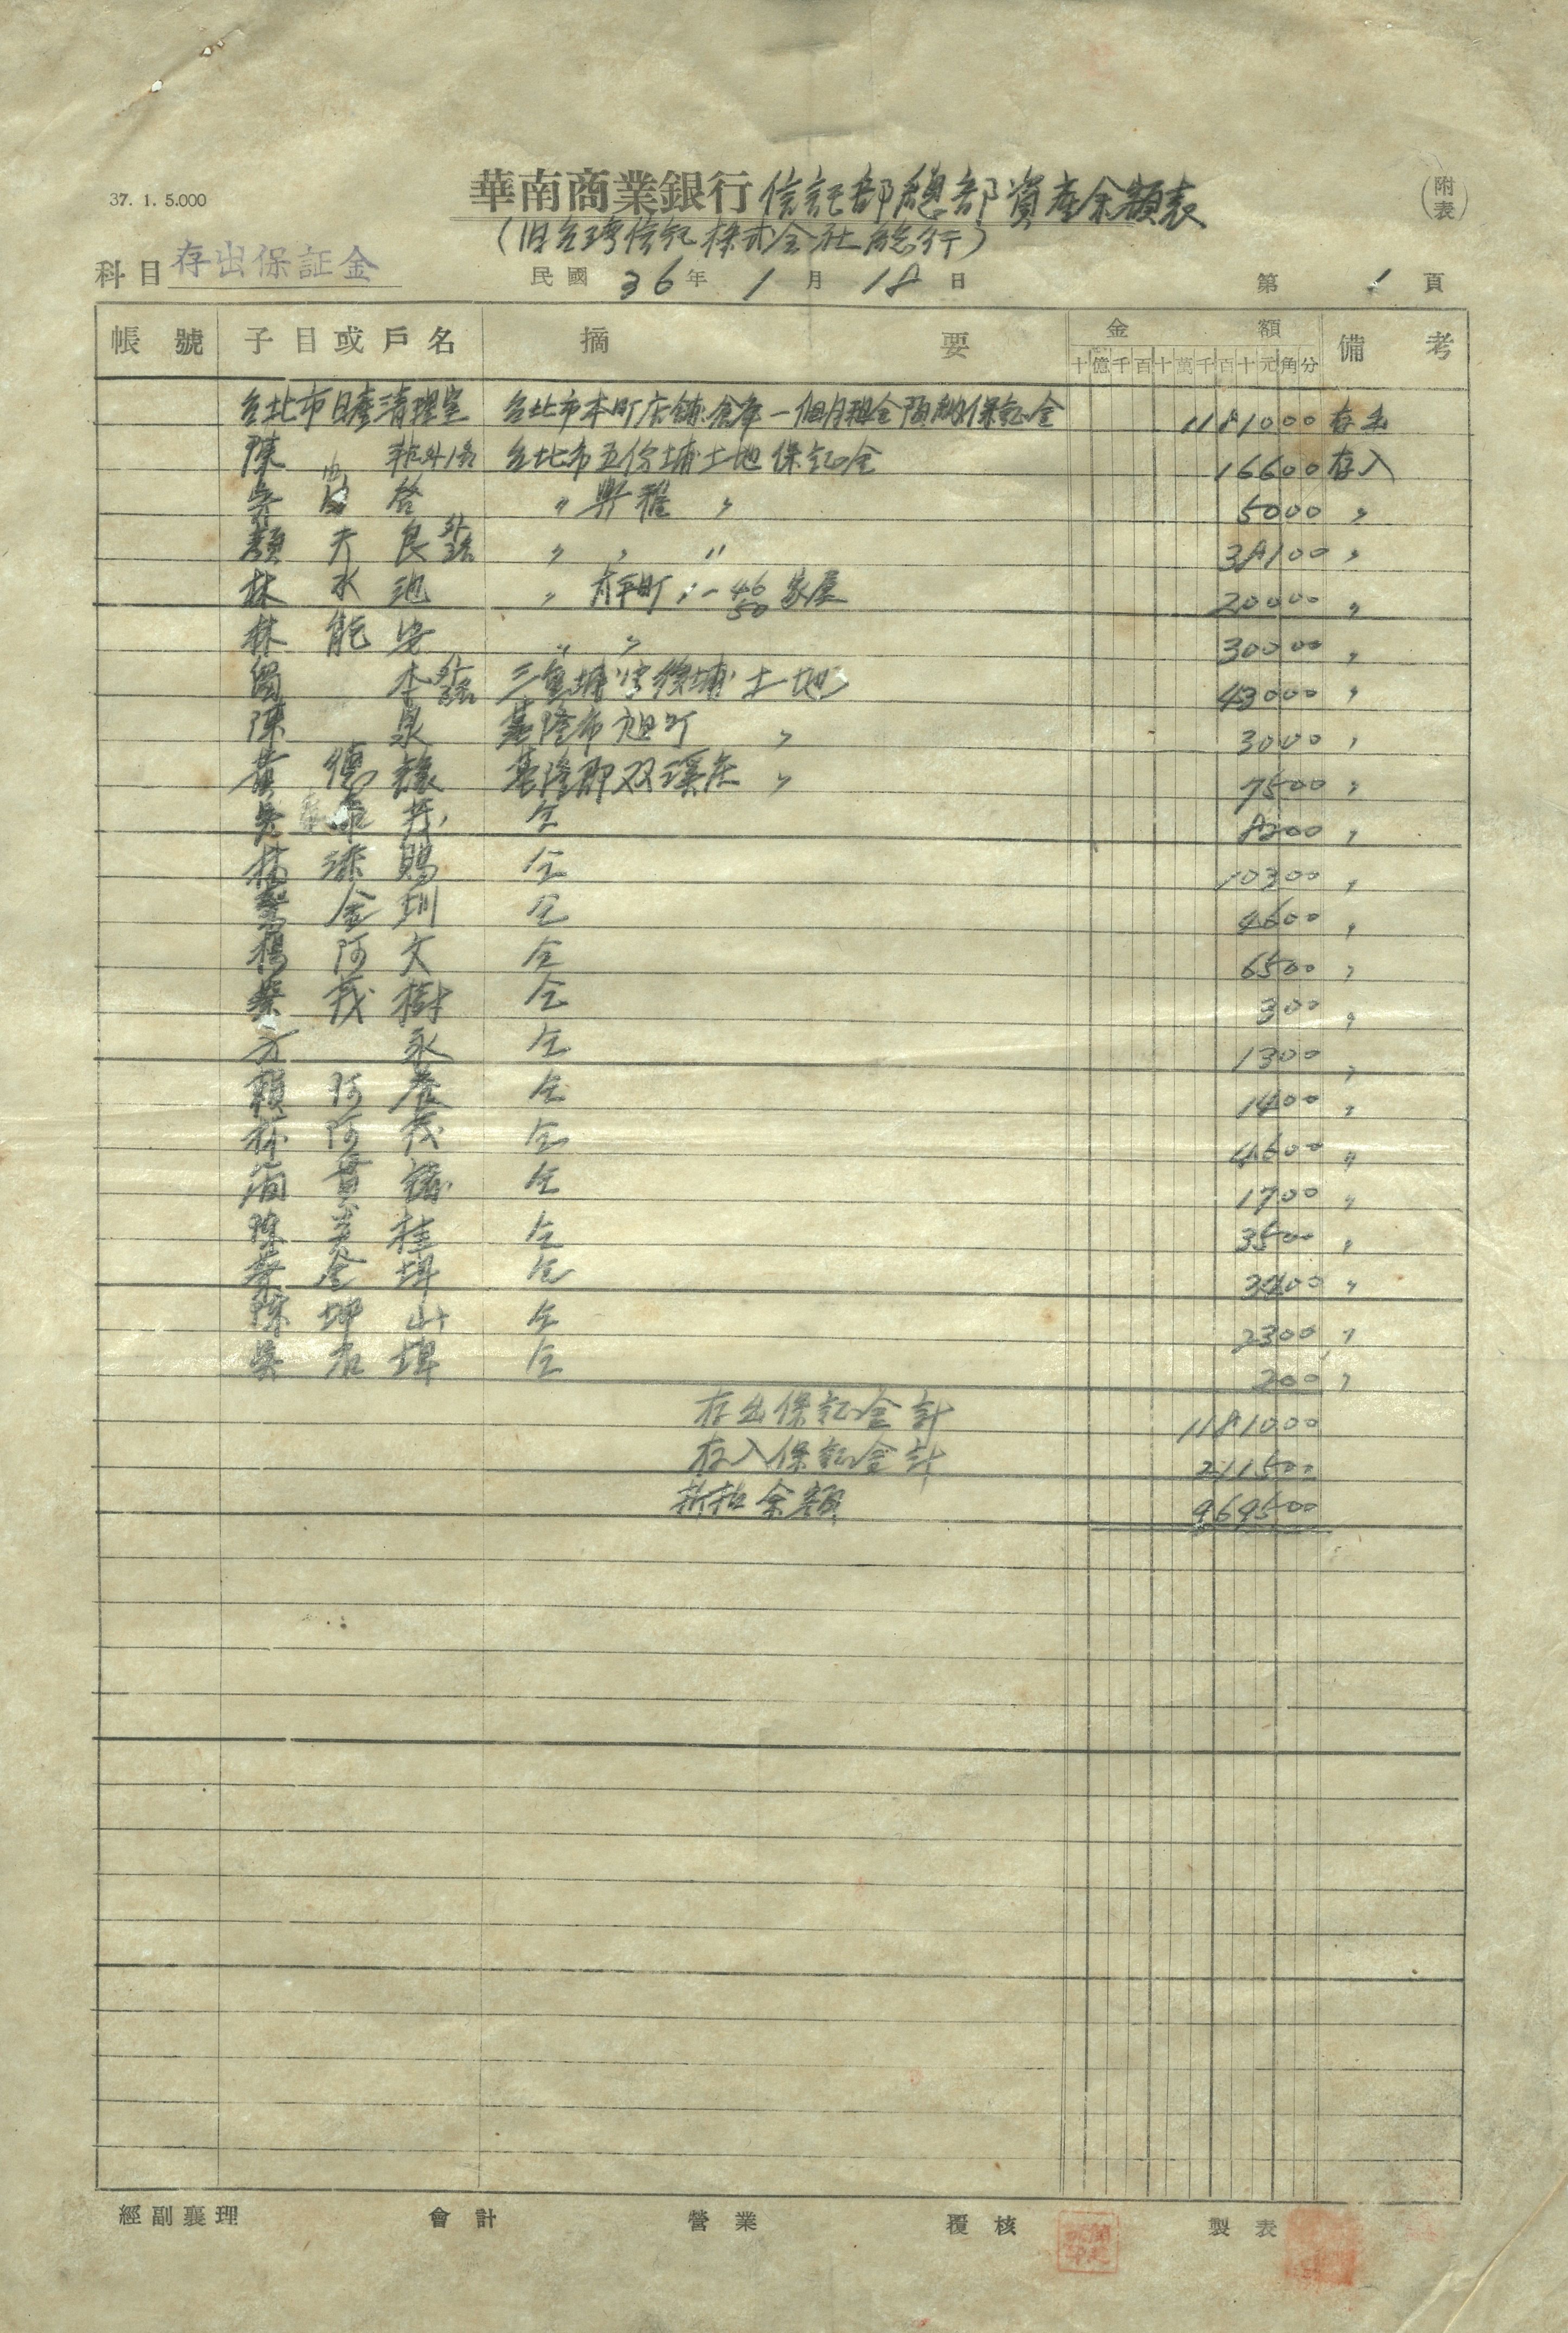 37. 1. 5.000
華南商業銀行信託部總部資產余額表
(附表)
(旧台湾信託株式会社總行)
科目 存出保証金
民國 36 年 1 月 18 日
第 1 頁
帳號 子目或戶名 摘要 金額 備考
十億千百十萬千百十元角分
台北市日產清理室 台北市本町店舖倉庫一個月租金預納保証金 1181000 存出
陳 外1名 台北市五份埔土地保証金 16600 存入
啓 〃 興雅 〃 5000 〃
顏 夫 良 〃 〃 〃 38100 〃
林 水 池 〃 46 50 家屋 20000 〃
林 能 安 〃 〃 30000 〃
本 三重埔字後埔土地 43000 〃
陳 泉 基隆市旭町 〃 3000 〃
黃 德 基隆郡双溪庄 〃 7500 〃
吳 茂 仝 8200 〃
林 添 賜 仝 10300 〃
金 圳 仝 4600 〃
楊 阿 文 仝 6500 〃
茂 樹 仝 300 〃
方 永 仝 1300 〃
賴 阿 仝 1400 〃
林 阿 茂 仝 4600 〃
仝 1700 〃
陳 桂 仝 3500 〃
金 埤 仝 3400 〃
陳 坤 山 仝 2300 〃
吳 石 埤 仝 200 〃
存出保証金計 1181000
存入保証金計 211500
折扣余額 969500
經副襄理 會計 營業 覆核 製表